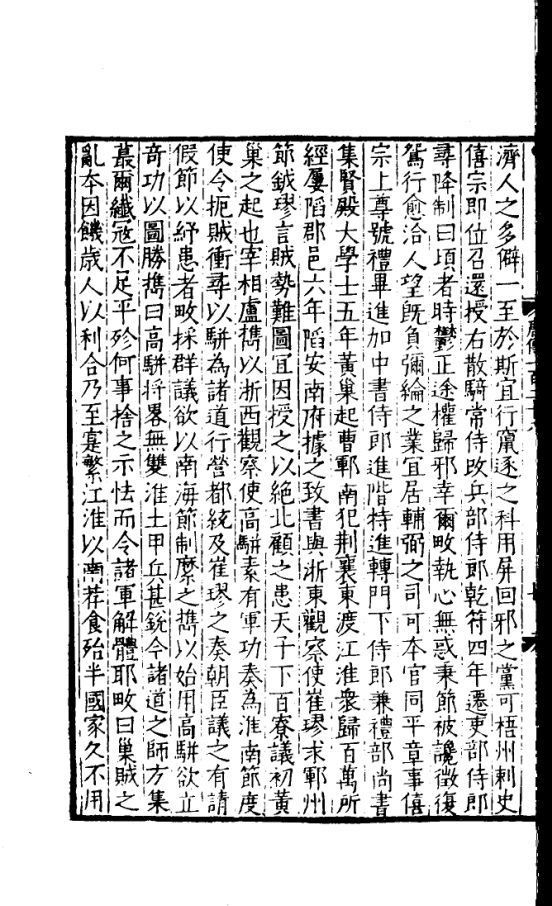 濟人之多僻一至於斯宜行竄逐之科用屏回邪之黨可梧州刺史
僖宗即位召還授右散騎常侍改兵部侍郎乾符四年遷吏部侍郎
尋降制曰項者時鬱正途權歸邪幸爾畋執心無惑秉節被讒徵復
鴛行愈洽人望旣負彌綸之業宜居輔弼之司可本官同平章事僖
宗上尊號禮畢進加中書侍郎進階特進轉門下侍郎兼禮部尚書
集賢殿大學士五年黃巢起曹鄆南犯荆襄東渡江淮衆歸百萬所
經屢陷郡邑六年陷安南府據之致書與浙東觀察使崔璆求鄆州
節鉞璆言賊勢難圖宜因授之以絶北顧之患天子下百寮議初黃
巢之起也宰相盧攜以浙西觀察使高駢素有軍功奏為淮南節度
使令扼賊衝尋以駢為諸道行營都統及崔璆之奏朝臣議之有請
假節以紓患者畋採群議欲以南海節制縻之攜以始用高駢欲立
奇功以圖勝攜曰高駢將畧無雙淮土甲兵甚銳今諸道之師方集
蕞爾纖寇不足平殄何事捨之示怯而令諸軍解體耶畋曰巢賊之
亂本因饑歲人以利合乃至寔繁江淮以南荐食殆半國家久不用